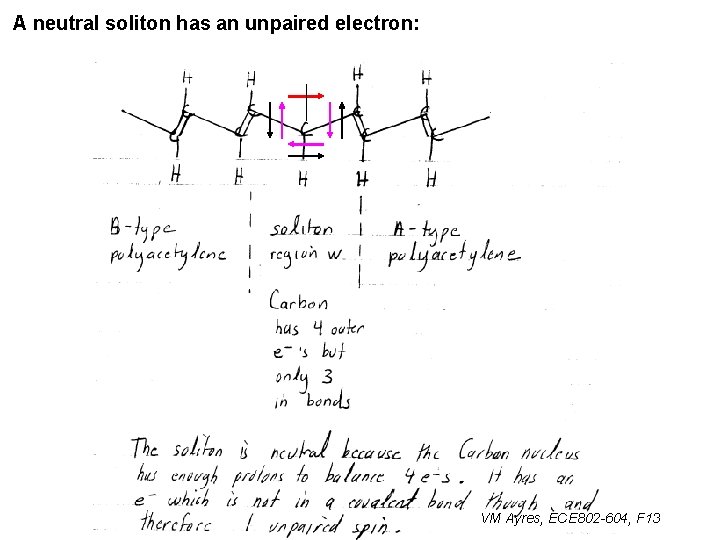 A neutral soliton has an unpaired electron:
H H H H
C C C C C C C
H H H H H
B-type soliton A-type
polyacetylene region w polyacetylene
Carbon
has 4 outer
e⁻'s but
only 3
in bonds
The soliton is neutral because the Carbon nucleus
has enough protons to balance 4 e⁻s. It has an
e⁻ which is not in a covalent bond though, and
therefore 1 unpaired spin.
VM Ayres, ECE802-604, F13